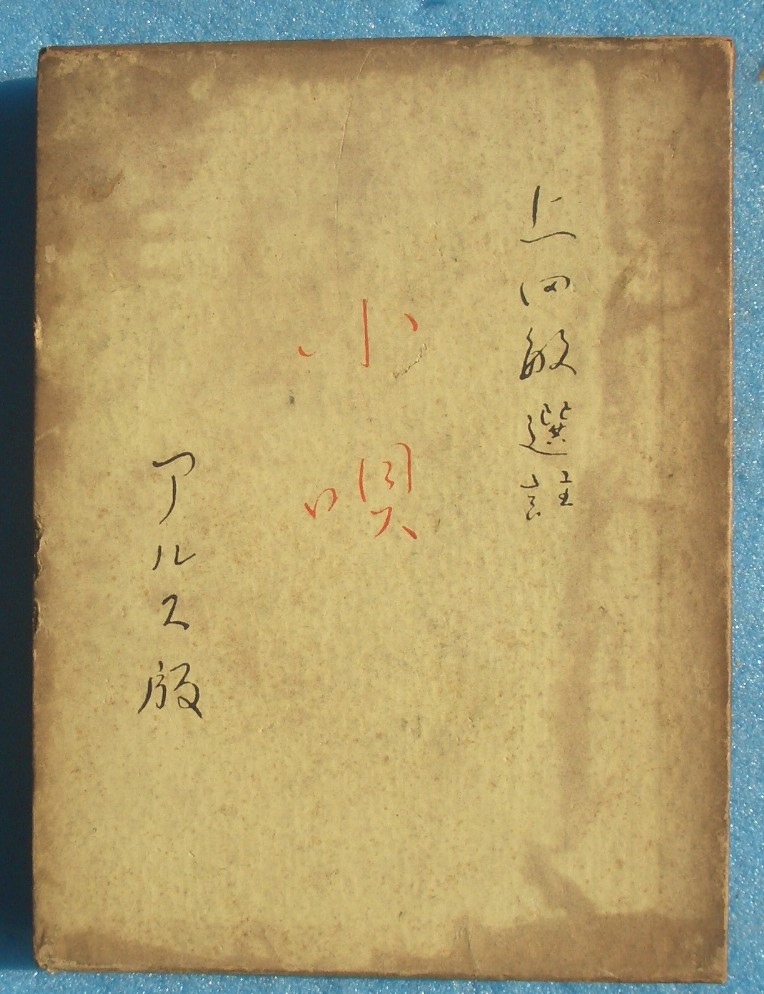 上田敏選註
小唄
アルス版